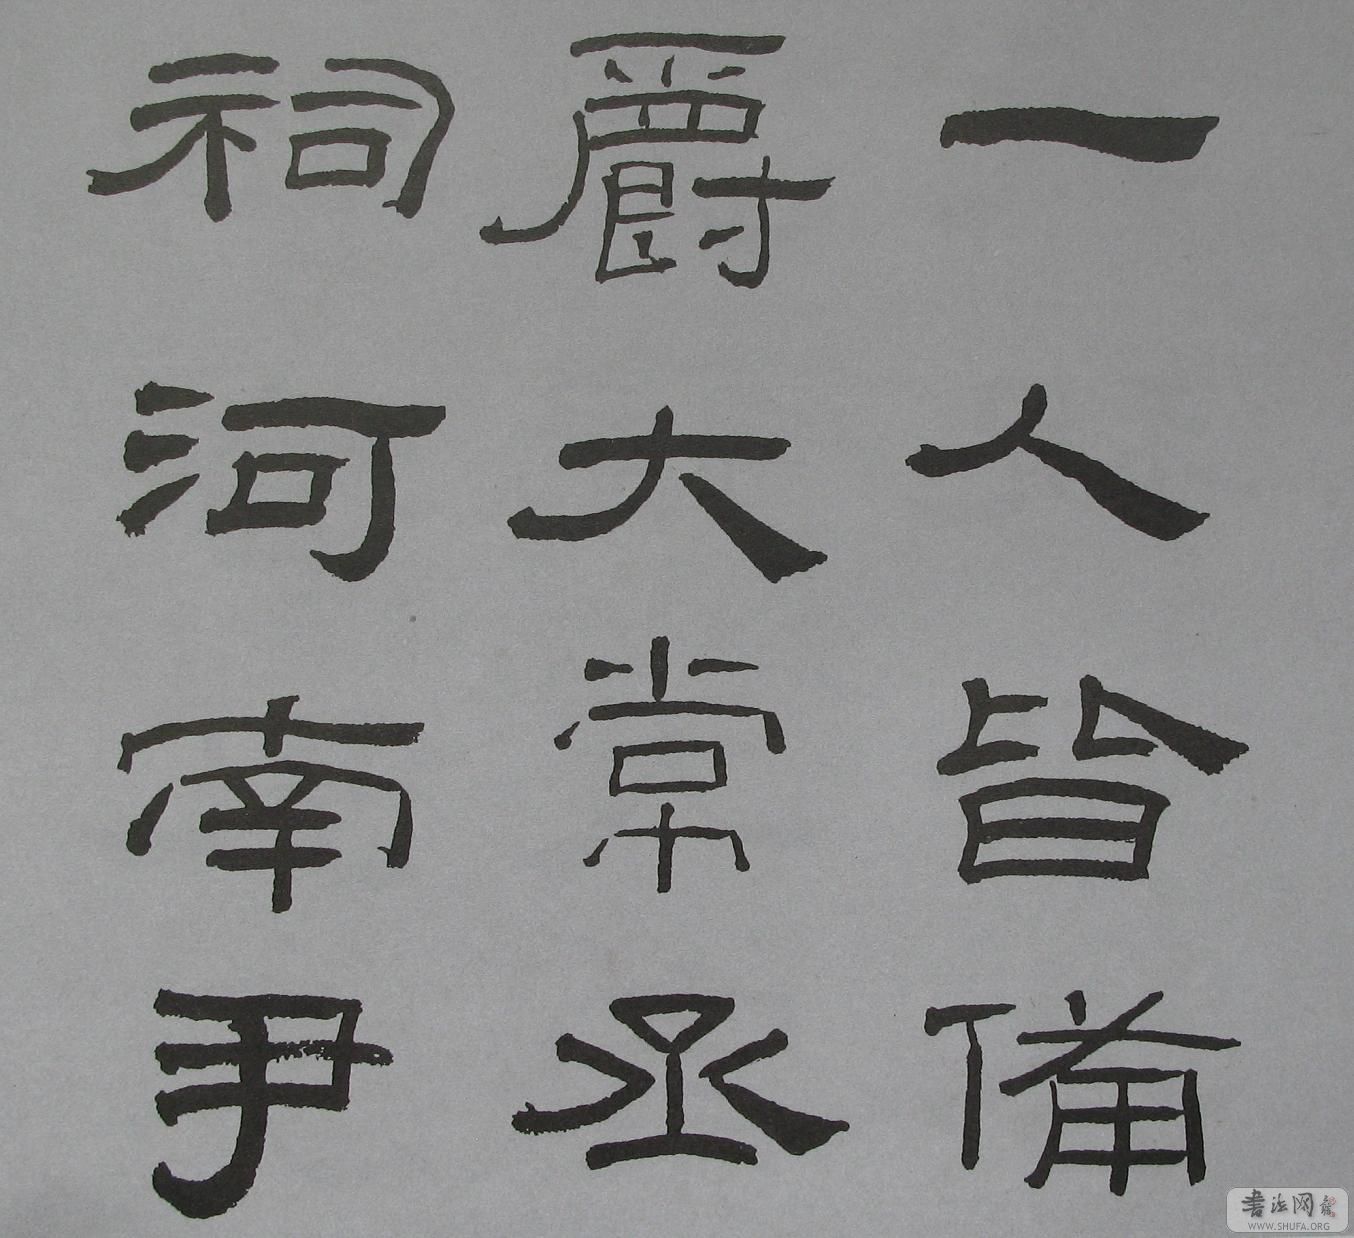 一人皆備
爵大常丞
祠河南尹
書法网
WWW.SHUFA.ORG